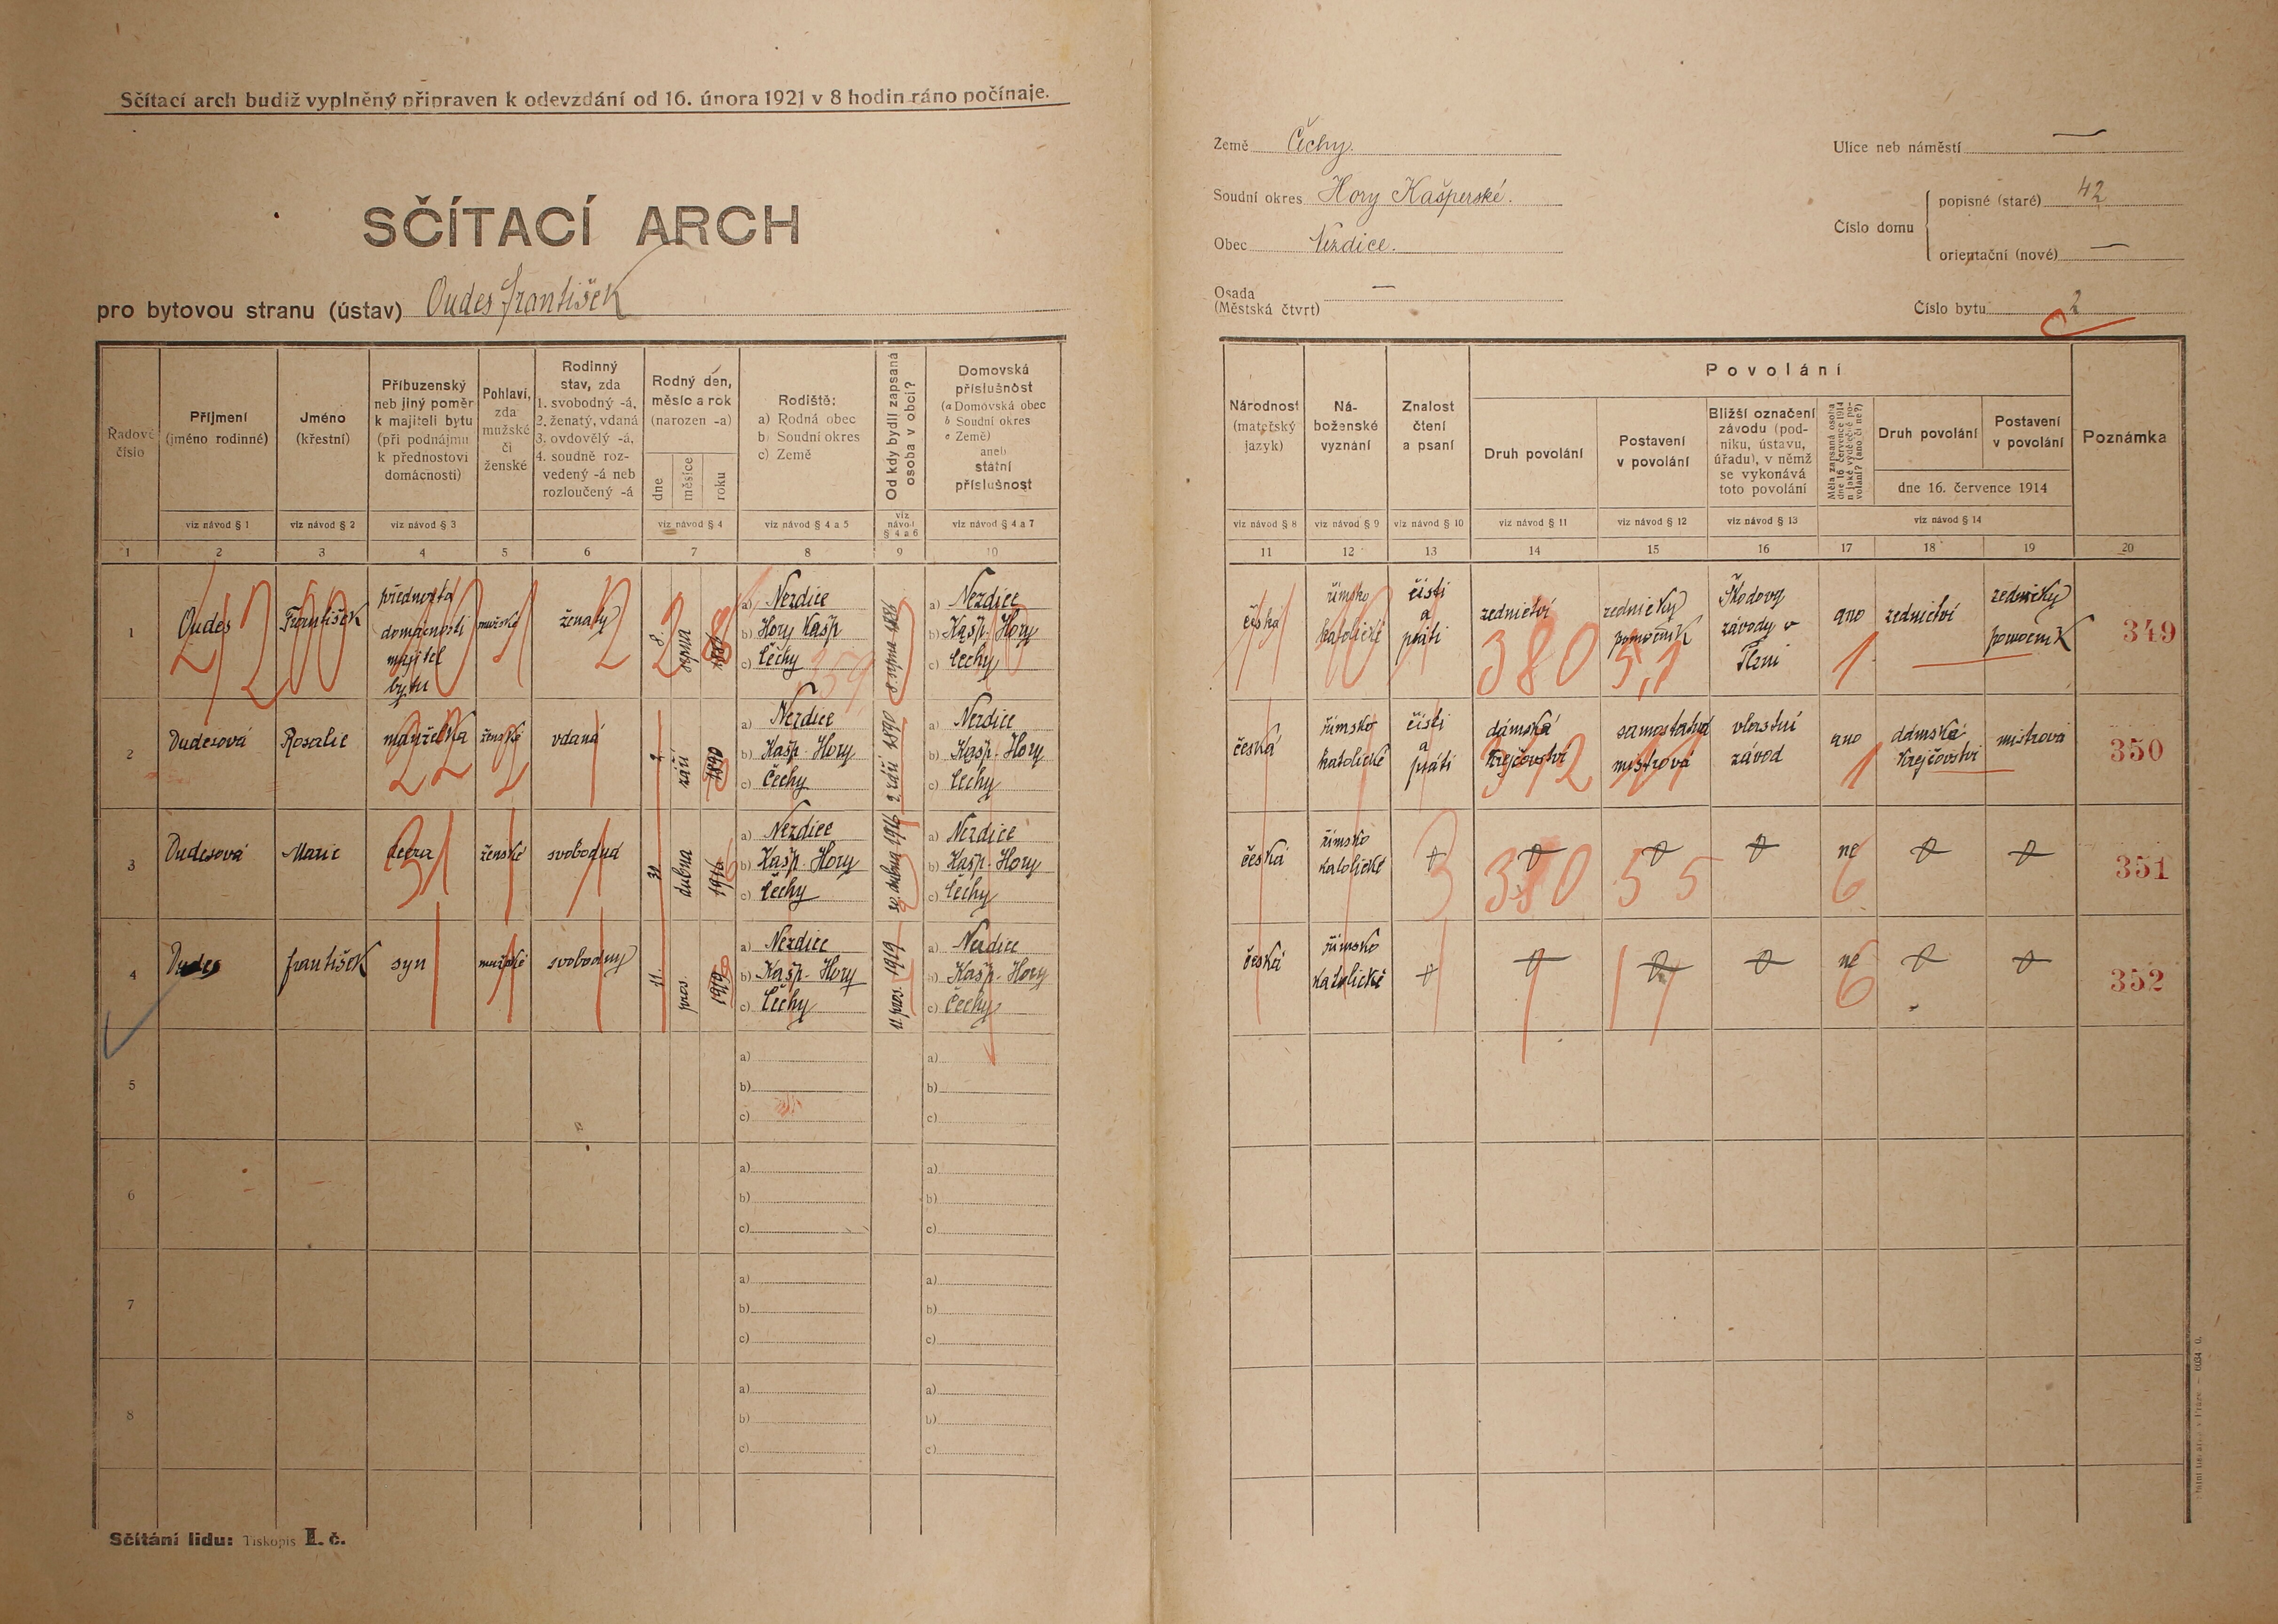 Sčítací arch budiž vyplněný připraven k odevzdání od 16. února 1921 v 8 hodin ráno počínaje.
SČÍTACÍ ARCH
pro bytovou stranu (ústav) Oudes František
Země Čechy.
Soudní okres Hory Kašperské.
Obec Nezdice.
Osada —
(Městská čtvrt)
Ulice neb náměstí —
Číslo domu
popisné (staré) 42
orientační (nové) —
Číslo bytu 2
Řadové číslo
Příjmení (jméno rodinné)
Jméno (křestní)
Příbuzenský neb jiný poměr k majiteli bytu (při podnájmu k přednostovi domácnosti)
Pohlaví, zda mužské či ženské
Rodinný stav, zda 1. svobodný -á, 2. ženatý, vdaná 3. ovdovělý -á, 4. soudně rozvedený -á neb rozloučený -á
Rodný den, měsíc a rok (narozen -a)
dne měsíce roku
Rodiště: a) Rodná obec b) Soudní okres c) Země
Od kdy bydlí zapsaná osoba v obci?
Domovská příslušnost (a Domovská obec b Soudní okres c Země) aneb státní příslušnost
Národnost (mateřský jazyk)
Náboženské vyznání
Znalost čtení a psaní
Povolání
Druh povolání
Postavení v povolání
Bližší označení závodu (podniku, ústavu, úřadu), v němž se vykonává toto povolání
Měla zapsaná osoba dne 16. července 1914 nějaké výdělečné povolání? (ano či ne?)
Druh povolání
Postavení v povolání
dne 16. července 1914
Poznámka
viz návod § 1 viz návod § 2 viz návod § 3 viz návod § 4 viz návod § 4 a 5 viz návod § 4 a 6 viz návod § 4 a 7
viz návod § 8 viz návod § 9 viz návod § 10 viz návod § 11 viz návod § 12 viz návod § 13 viz návod § 14
1 2 3 4 5 6 7 8 9 10
11 12 13 14 15 16 17 18 19 20
1 Oudes František přednosta domácnosti majitel bytu mužské ženatý 8. srpna 1886 a) Nezdice b) Hory Kašp c) Čechy 8. srpna 1886 a) Nezdice b) Kašp. Hory c) Čechy
česká římsko katolické čísti a psáti zednictví zednický pomocník Škodovy závody v Plzni ano zednictví zednický pomocník 349
380 5,1 1
2 Dudesová Rosalie manželka ženské vdaná 2. září 1890 a) Nezdice b) Kašp. Hory c) Čechy 2 září 1890 a) Nezdice b) Kašp. Hory c) Čechy
česká římsko katolické čísti a psáti dámská krejčovství samostatná mistrová vlastní závod ano dámská krejčovství mistrová 350
3 Dudesová Marie dcera ženské svobodná dubna 1916 a) Nezdice b) Kašp. Hory c) Čechy dubna 1916 a) Nezdice b) Kašp. Hory c) Čechy
česká římsko katolické ne 351
3 380 5 5 6
4 Dudes František syn mužské svobodný 11. pros. 1919 a) Nezdice b) Kašp. Hory c) Čechy 11. pros. 1919 a) Nezdice b) Kašp. Hory c) Čechy
česká římsko katolické ne 352
6
5 a) b) c) a) b) c)
6 a) b) c) a) b) c)
7 a) b) c) a) b) c)
8 a) b) c) a) b) c)
Sčítání lidu: Tiskopis I. č.